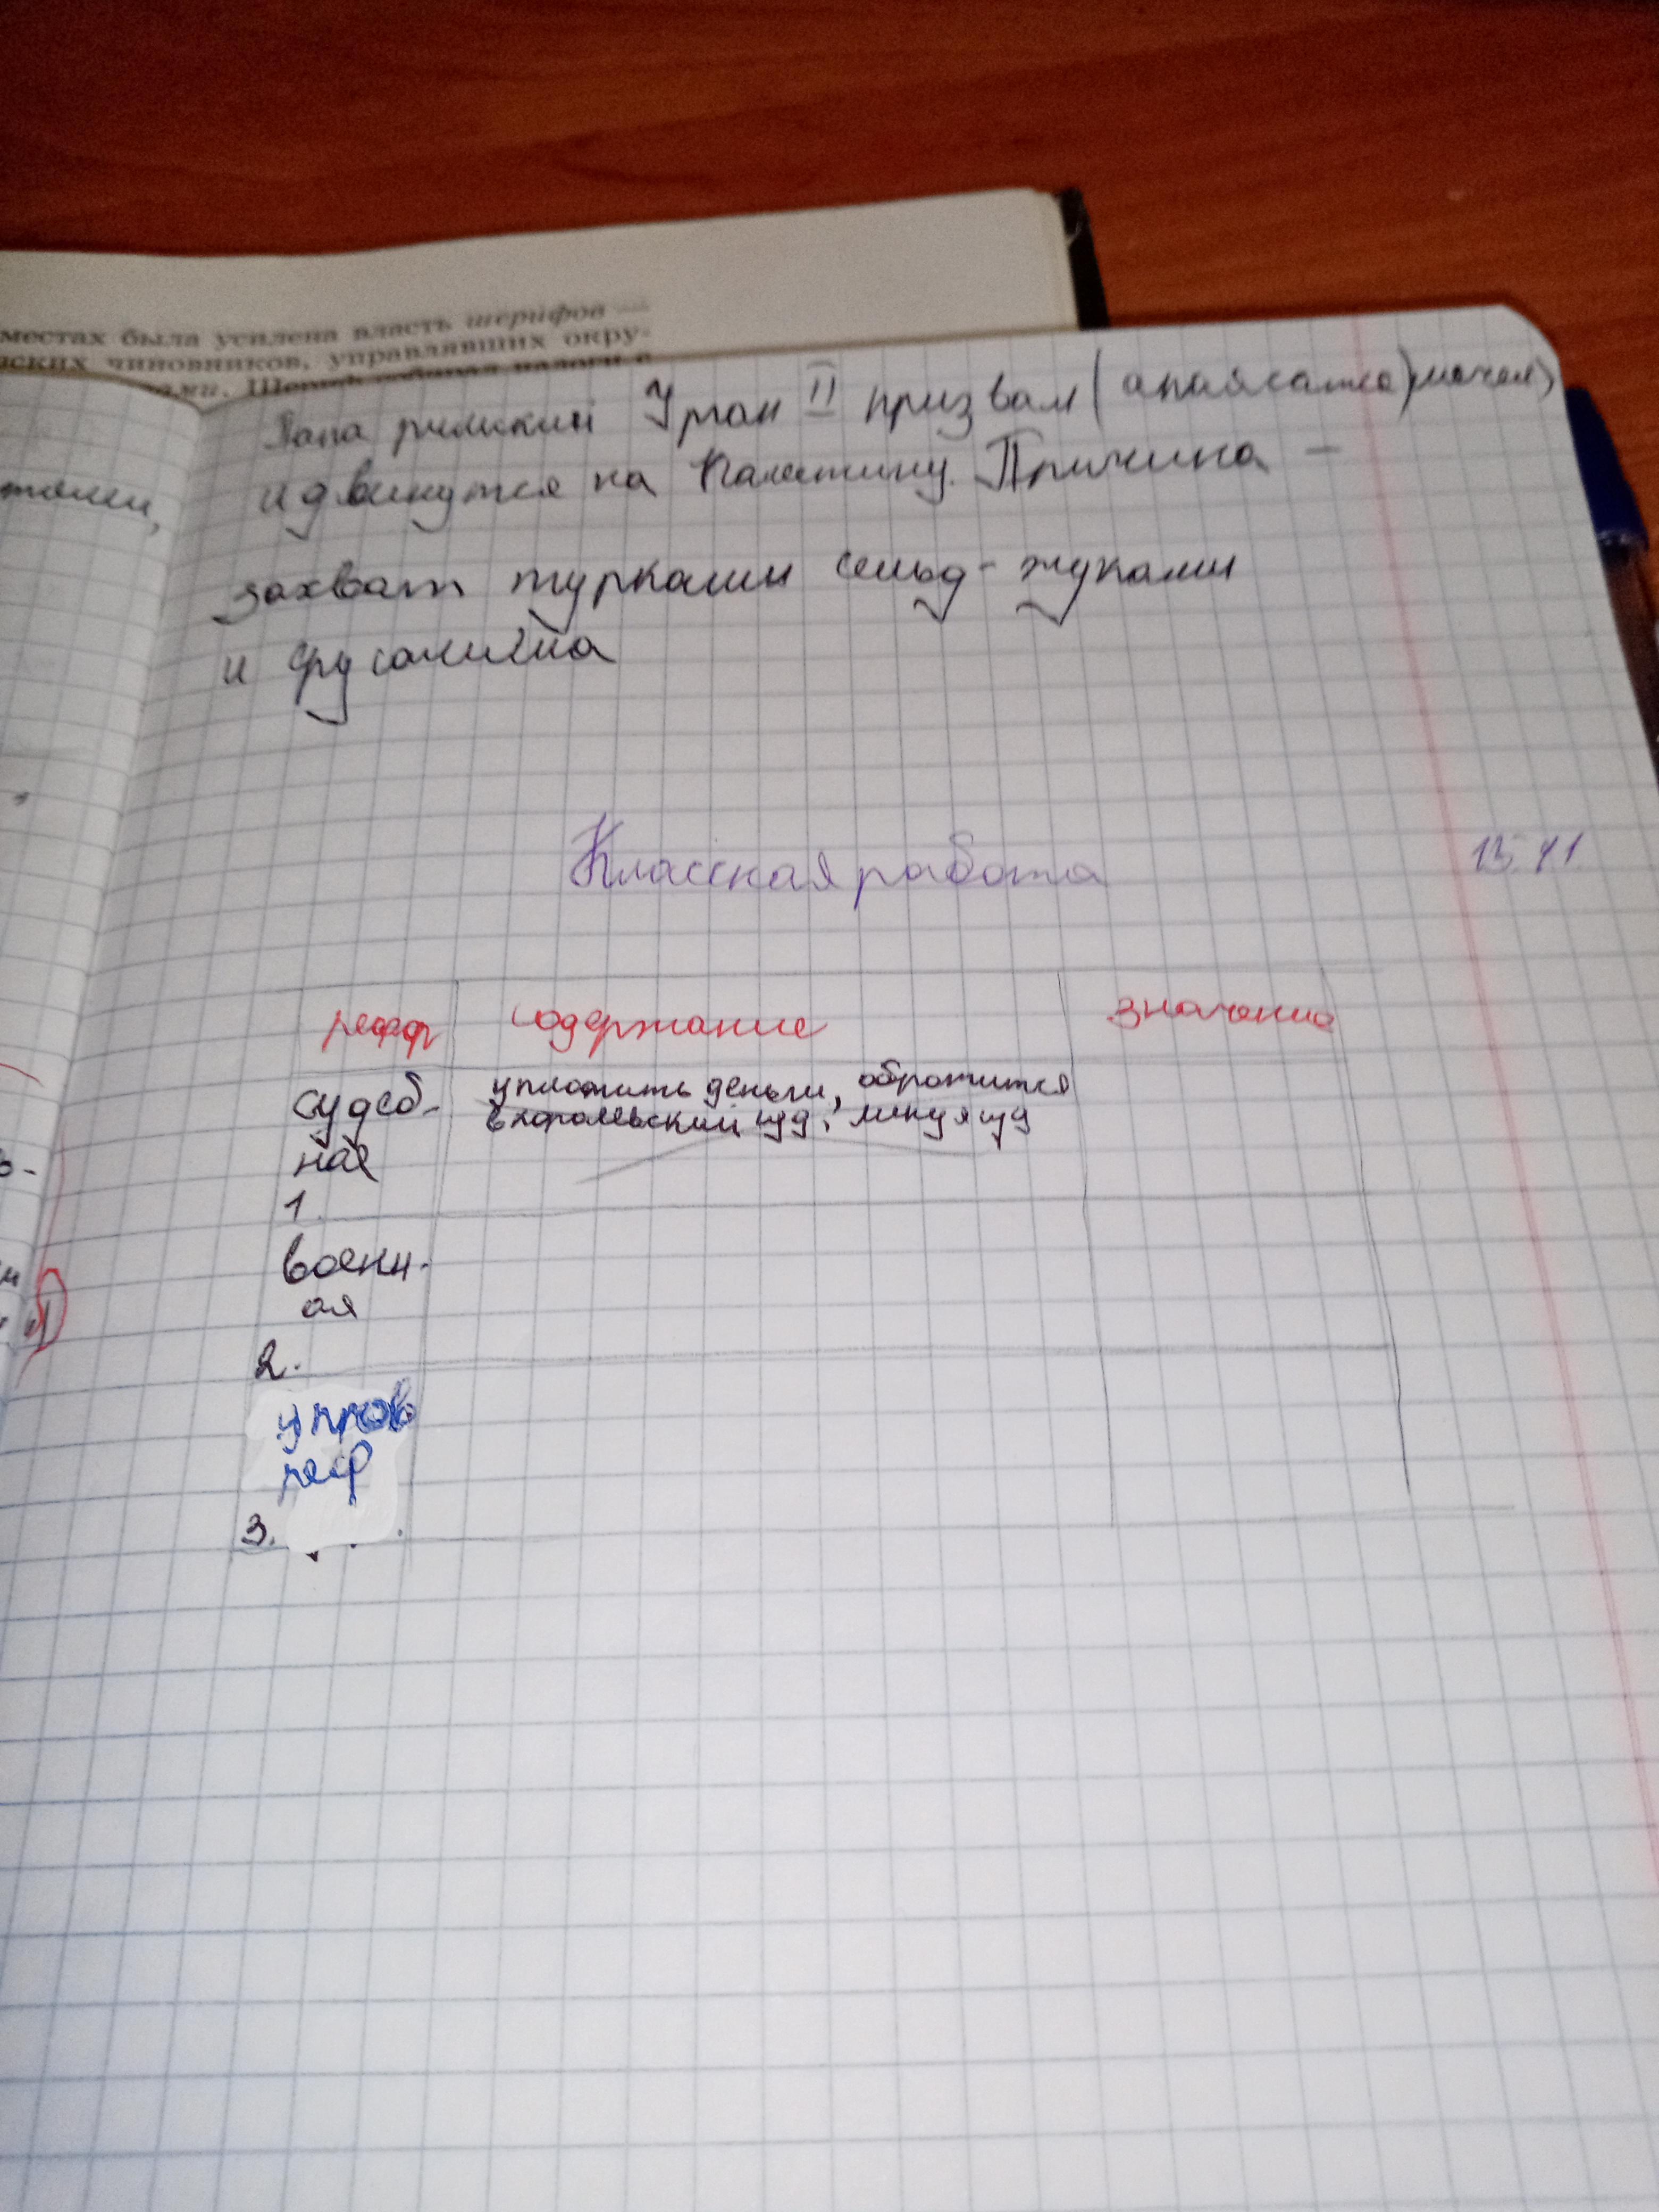 местах была усилена власть шерифов —
ских чиновников, управлявших окру-
ами. Шериф собирал налоги с
Папа римский Урбан II призвал (апаясатмо) мечем)
и двинутся на Палестину. Причина —
захват турками сельд-жуками
и ерусалима
Классная работа
13.11
рефор содержание значение
судеб- уплатить деньги, обротится
ная в королевский суд, минуя суд
1.
воени-
ая
2.
управ
реф
3.